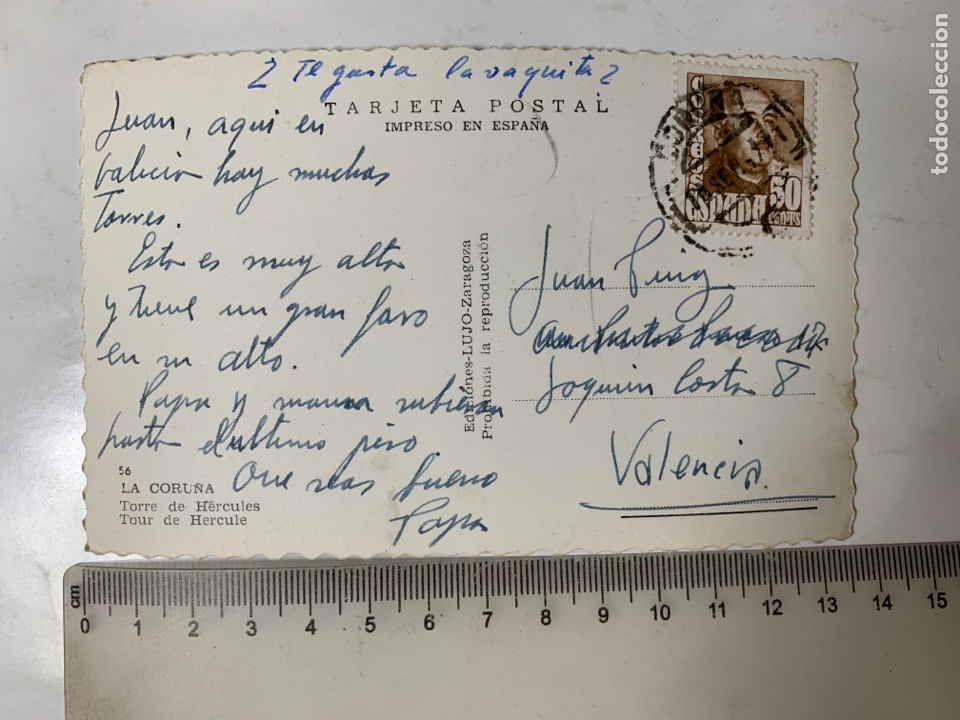 ¿ Te gusta la vaquita ?
TARJETA POSTAL
IMPRESO EN ESPAÑA
Juan, aqui en
Galicia hay muchas
Torres.
Esta es muy alta
y tiene un gran faro
en su alto.
Papa y mama subieron
hasta el ultimo piso
Que seas bueno
Papa
56
LA CORUÑA
Torre de Hércules
Tour de Hercule
Ediciones-LUJO-Zaragoza
Prohibida la reproducción
CORREOS
ESPAÑA
50
CENTS
Juan Puig
17
Joaquin Costa 8
Valencia
cm
0 1 2 3 4 5 6 7 8 9 10 11 12 13 14 15
todocoleccion.net